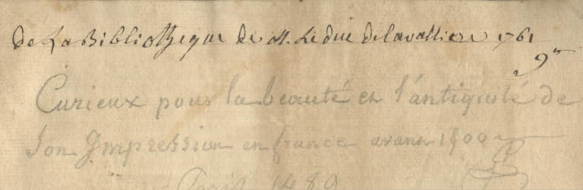 De La Bibliotheque de M. Le duc de lavalliere 1761
9ᵐ
Curieux pour la beauté et l'antiquité de
son Impression en france avant 1500
Paris 1489